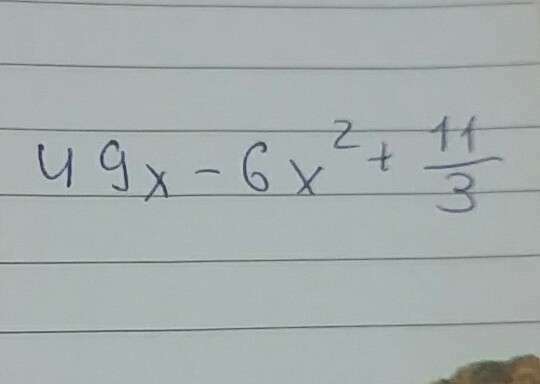 49x - 6x² + 11/3